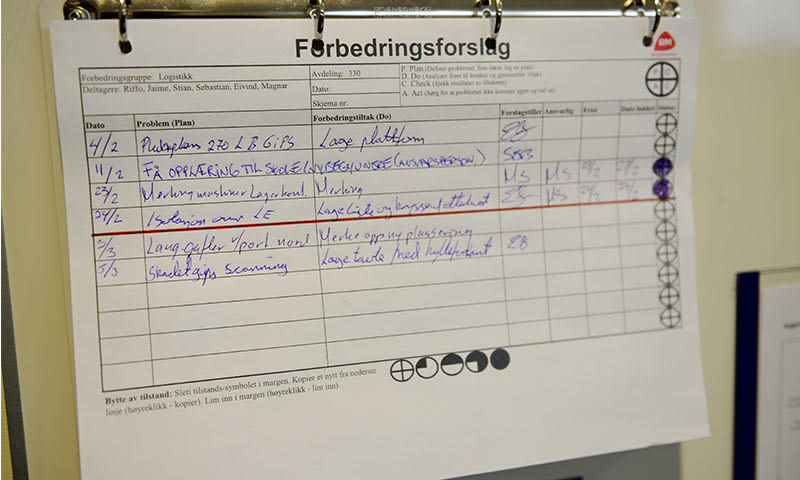 Forbedringsforslag
BM
Forbedringsgruppe: Logistikk
Avdeling: 330
P. Plan (Definer problemet, finn fakta, lag en plan)
Deltagere: Riffo, Jaime, Stian, Sebastian, Eivind, Magnar
Dato:
D. Do (Analyser fram til årsaker og gjennomfør tiltak)
C. Check (Sjekk resultatet av tiltakene)
Skjema nr:
A. Act (Sørg for at problemet ikke kommer igjen og null ut)
P D
A C
Dato Problem (Plan) Forbedringstiltak (Do) Forslagstiller Ansvarlig Frist Dato lukket Status
4/2 270 LB GiPS Lage plattform EB
11/2 FÅ OPPLÆRING TIL SKOLE
23/2 Merking maskiner Merking MS MS 23/2 23/2
24/2 Isolasjon LE Lage EB MS 24/2 24/2
3/3 Lang gafler v/port nord Merke opp ny plassering
5/3 Skadet gips scanning Lage tavle med EB
Bytte av tilstand: Slett tilstands-symbolet i margen. Kopier et nytt fra nederste
linje (høyreklikk - kopier). Lim inn i margen (høyreklikk - lim inn).